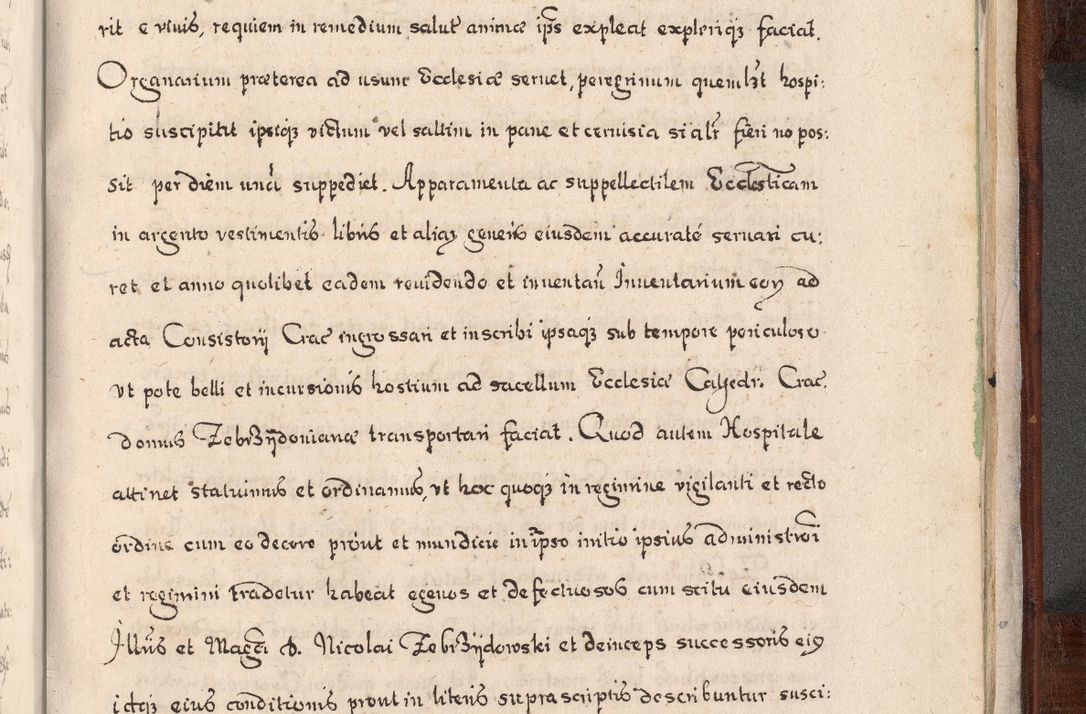 rit e vivis, requiem in remedium salut animæ ips expleat explerique faciat.
Organarium præterea ad usum Ecclesiæ servet, peregrinum quemlbt hospi:
tio suscipiat ipsique victum vel saltim in pane et cervisia si alr fieri no pos:
sit per diem unā suppediet. Apparamenta ac suppellectilem Ecclesticam
in argento vestimentis libris et aliaz generis eiusdem accuraté servari cu:
ret et anno quolibet eadem revidendo et inventan Inventarium eorz ad
acta Consistorij Crac ingrossari et inscribi ipsaque sub tempore periculoso
vt pote belli et incursionis hostium ad sacellum Ecclesiæ Cathedr. Crac.
domus Zebrzijdovianæ transportari faciat. Quod autem Hospitale
attinet statuimus et ordinamus, vt hoc quoque in regimine vigilanti et recto
ordine cum eo decore prout et mundicie in ipso initio ipsius administroi
et regimini tradetur habeat egenos et defectuosos cum scitu eiusdem
Illris et Magci D. Nicolai Zebrzijdowski et deinceps successoris ei9
idque eius conditionis prout in literis suprascriptis describuntur susci: